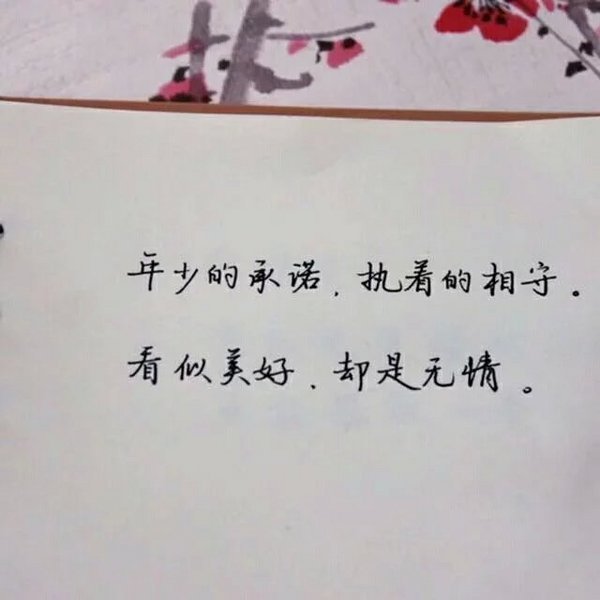 年少的承诺,执着的相守。
看似美好,却是无情。